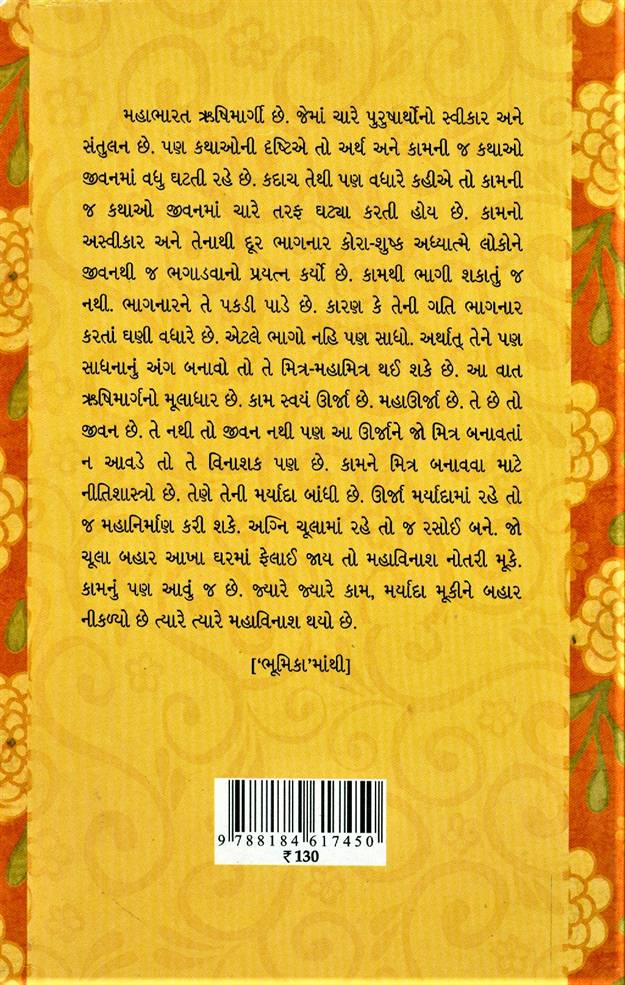 મહાભારત ઋષિમાર્ગી છે. જેમાં ચારે પુરુષાર્થોનો સ્વીકાર અને
સંતુલન છે. પણ કથાઓની દૃષ્ટિએ તો અર્થ અને કામની જ કથાઓ
જીવનમાં વધુ ઘટતી રહે છે. કદાચ તેથી પણ વધારે કહીએ તો કામની
જ કથાઓ જીવનમાં ચારે તરફ ઘટ્યા કરતી હોય છે. કામનો
અસ્વીકાર અને તેનાથી દૂર ભાગનાર કોરા-શુષ્ક અધ્યાત્મે લોકોને
જીવનથી જ ભગાડવાનો પ્રયત્ન કર્યો છે. કામથી ભાગી શકાતું જ
નથી. ભાગનારને તે પકડી પાડે છે. કારણ કે તેની ગતિ ભાગનાર
કરતાં ઘણી વધારે છે. એટલે ભાગો નહિ પણ સાધો. અર્થાત્ તેને પણ
સાધનાનું અંગ બનાવો તો તે મિત્ર-મહામિત્ર થઈ શકે છે. આ વાત
ઋષિમાર્ગનો મૂલાધાર છે. કામ સ્વયં ઊર્જા છે. મહાઊર્જા છે. તે છે તો
જીવન છે. તે નથી તો જીવન નથી પણ આ ઊર્જાને જો મિત્ર બનાવતાં
ન આવડે તો તે વિનાશક પણ છે. કામને મિત્ર બનાવવા માટે
નીતિશાસ્ત્રો છે. તેણે તેની મર્યાદા બાંધી છે. ઊર્જા મર્યાદામાં રહે તો
જ મહાનિર્માણ કરી શકે. અગ્નિ ચૂલામાં રહે તો જ રસોઈ બને. જો
ચૂલા બહાર આખા ઘરમાં ફેલાઈ જાય તો મહાવિનાશ નોતરી મૂકે.
કામનું પણ આવું જ છે. જ્યારે જ્યારે કામ, મર્યાદા મૂકીને બહાર
નીકળ્યો છે ત્યારે ત્યારે મહાવિનાશ થયો છે.
[‘ભૂમિકા’માંથી]
9 788184 617450
₹ 130